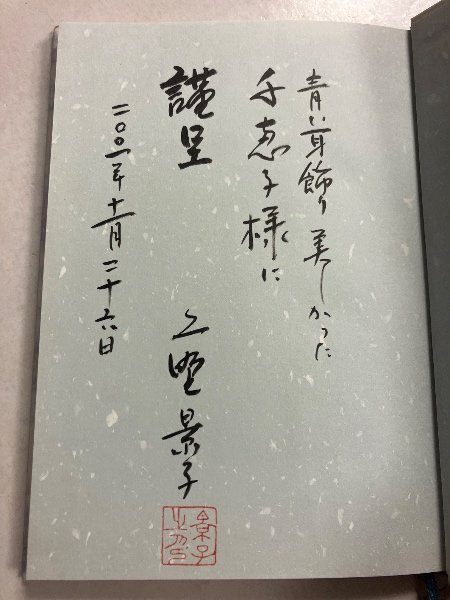 青い耳飾り 美しかった
千恵子様に
謹呈
上野景子
二〇〇一年十一月二十六日
景子